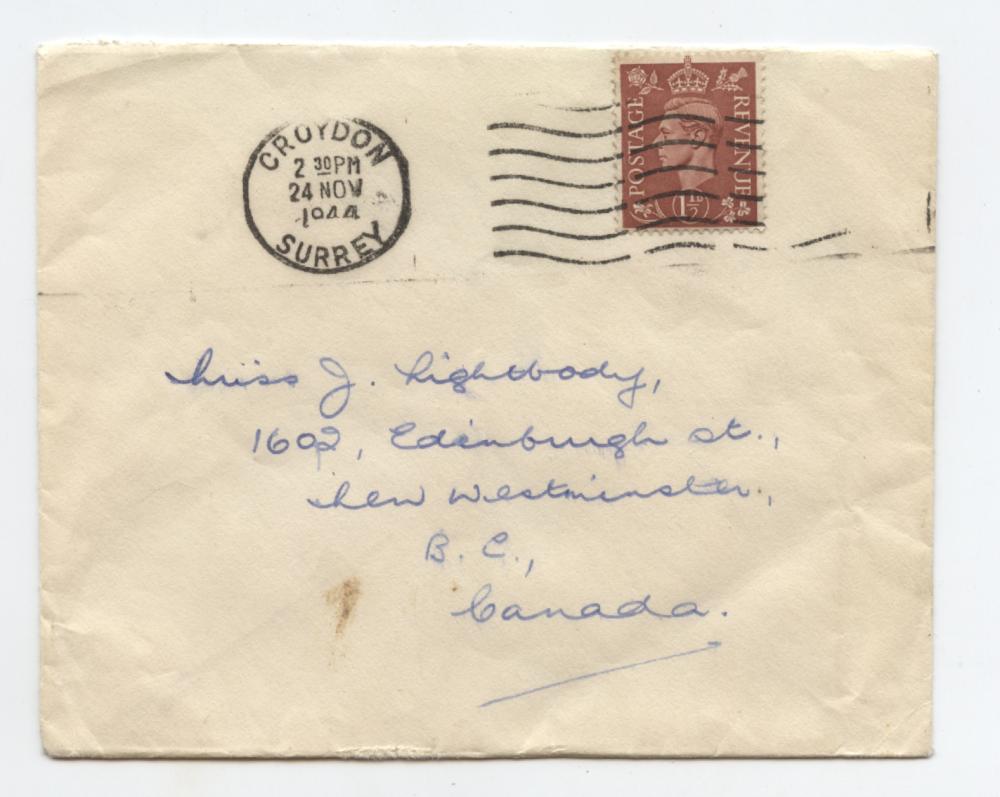 CROYDON
2 30 PM
24 NOV
1944
SURREY
POSTAGE
REVENUE
1½D
Miss J. Lightbody,
1602, Edinburgh St.,
New Westminster,
B. C.,
Canada.